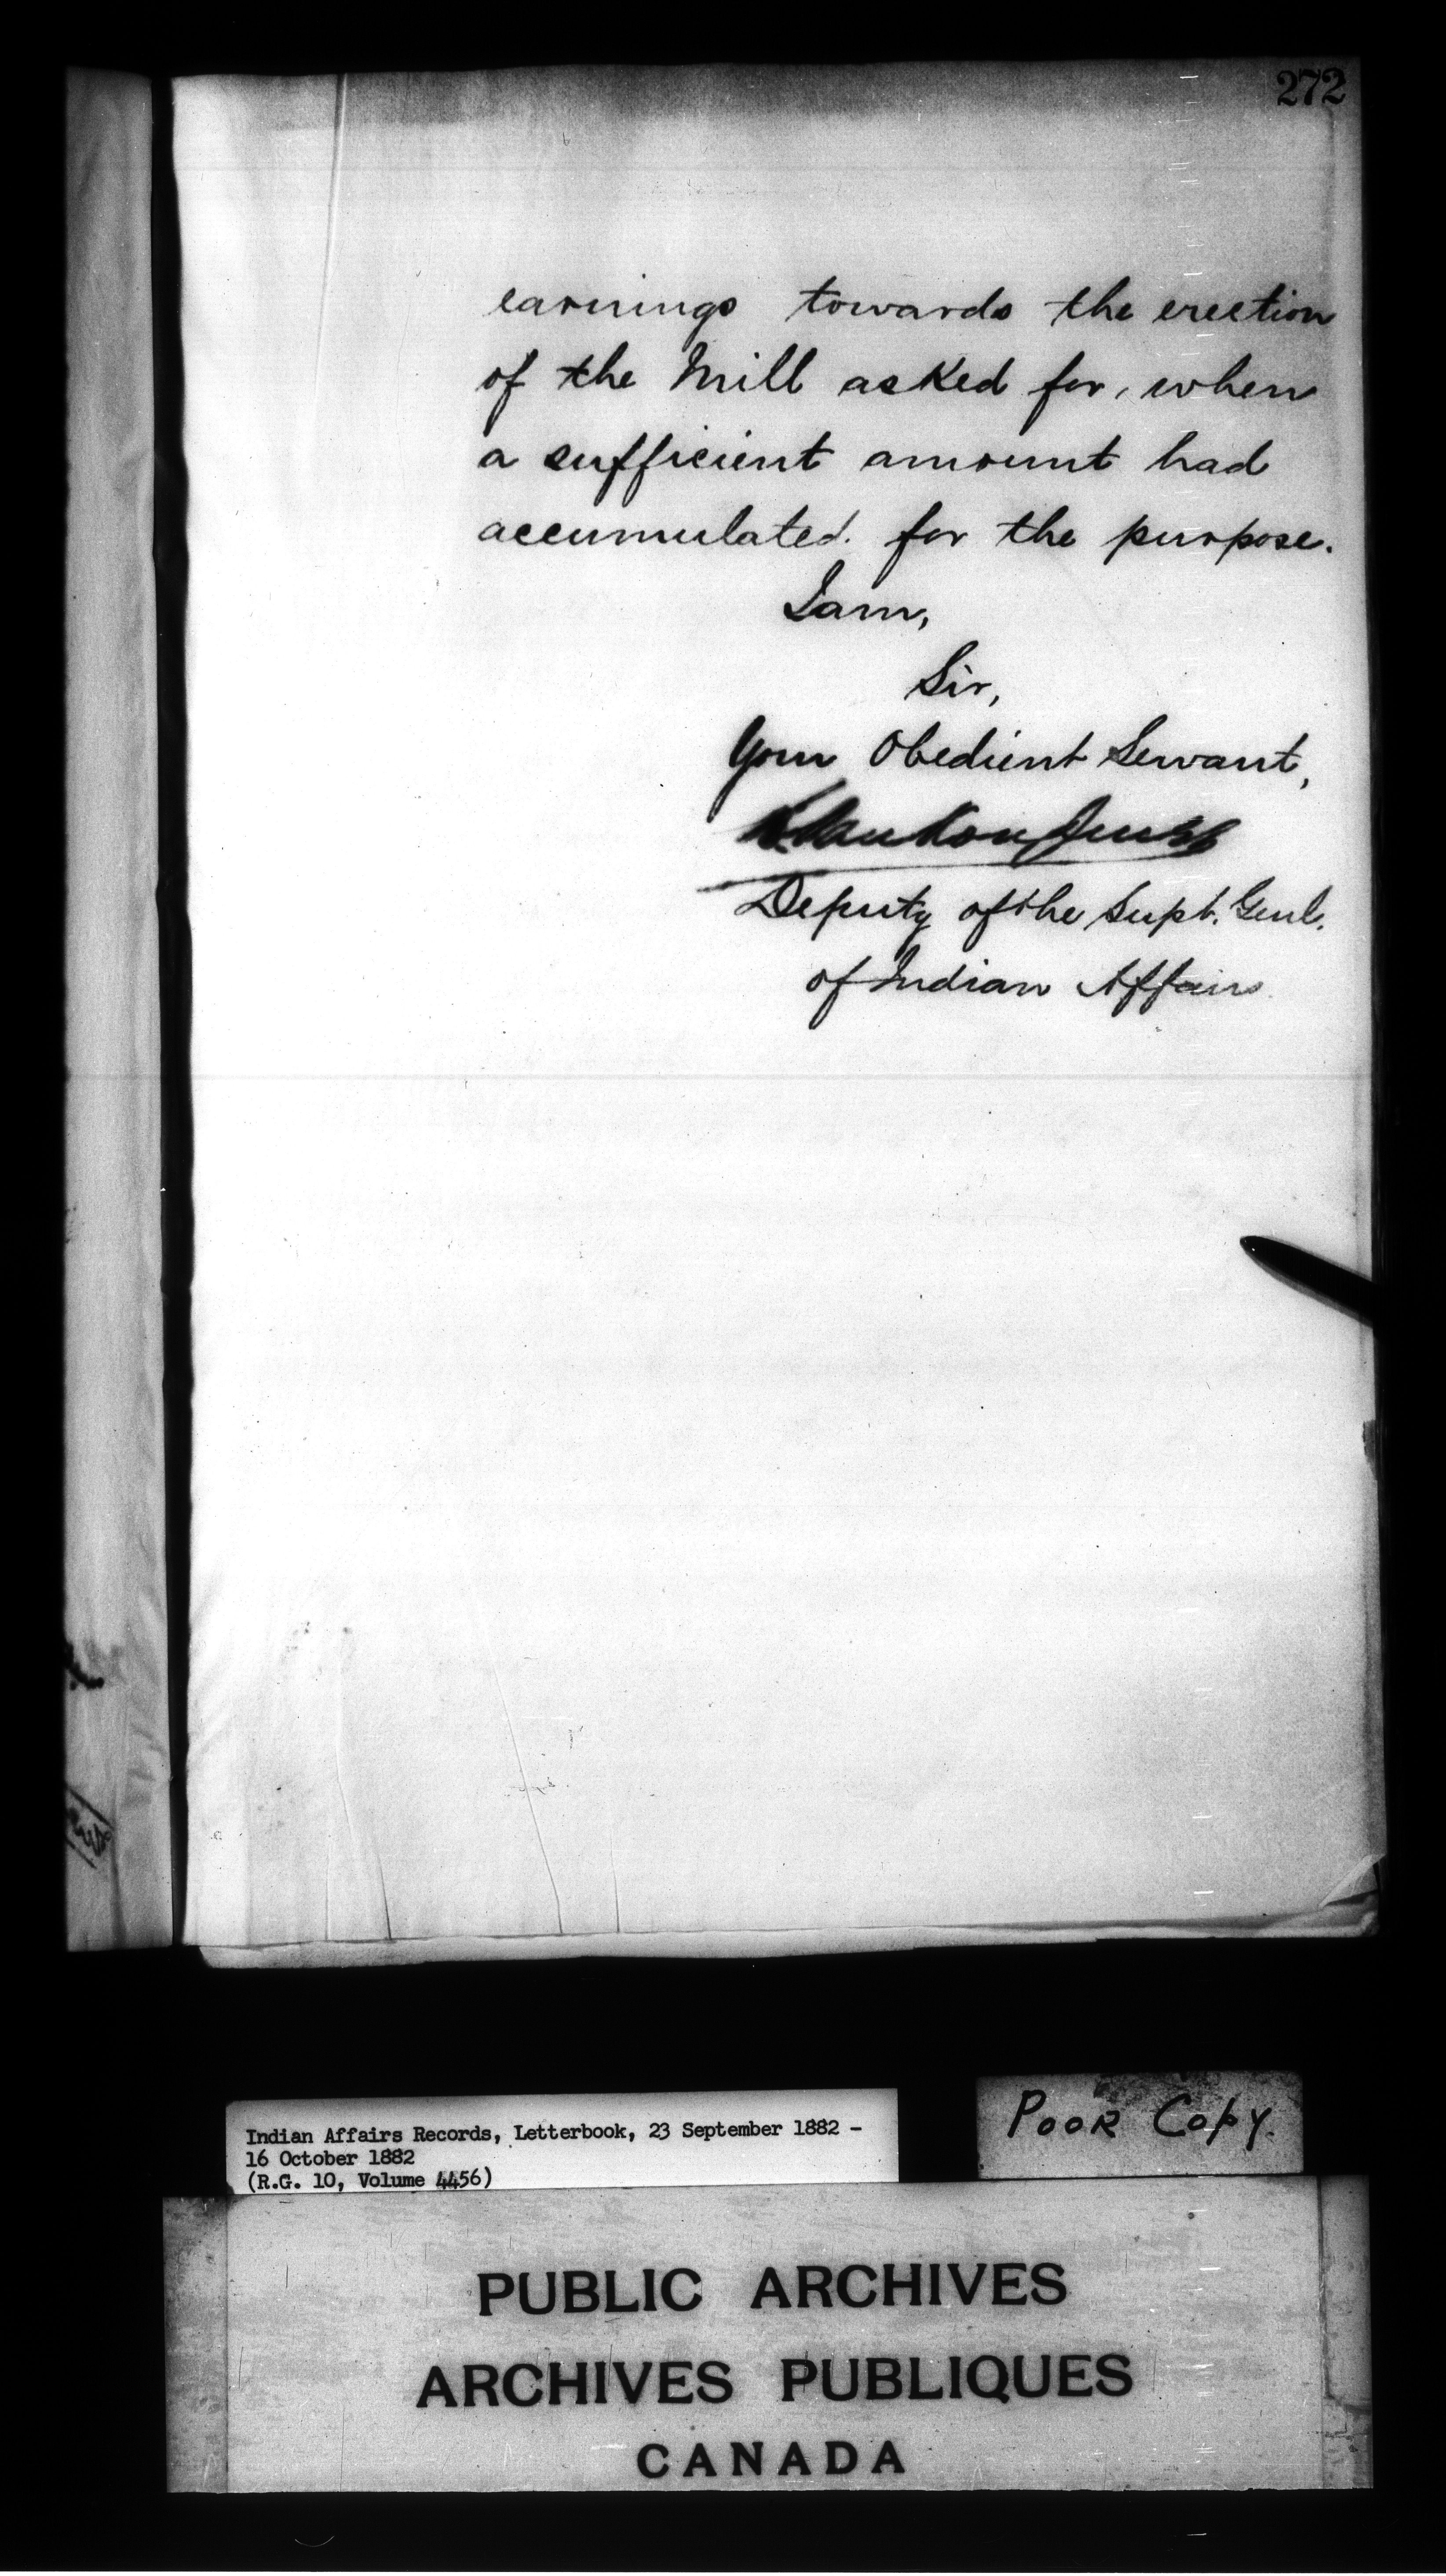 272
earnings towards the erection
of the Mill asked for, when
a sufficient amount had
accumulated. for the purpose.
I am,
Sir,
Your Obedient Servant,
L. Vankoughnet
Deputy of the Supt. Genl.
of Indian Affairs
Indian Affairs Records, Letterbook, 23 September 1882 -
16 October 1882
(R.G. 10, Volume 4456)
Poor Copy.
PUBLIC ARCHIVES
ARCHIVES PUBLIQUES
CANADA